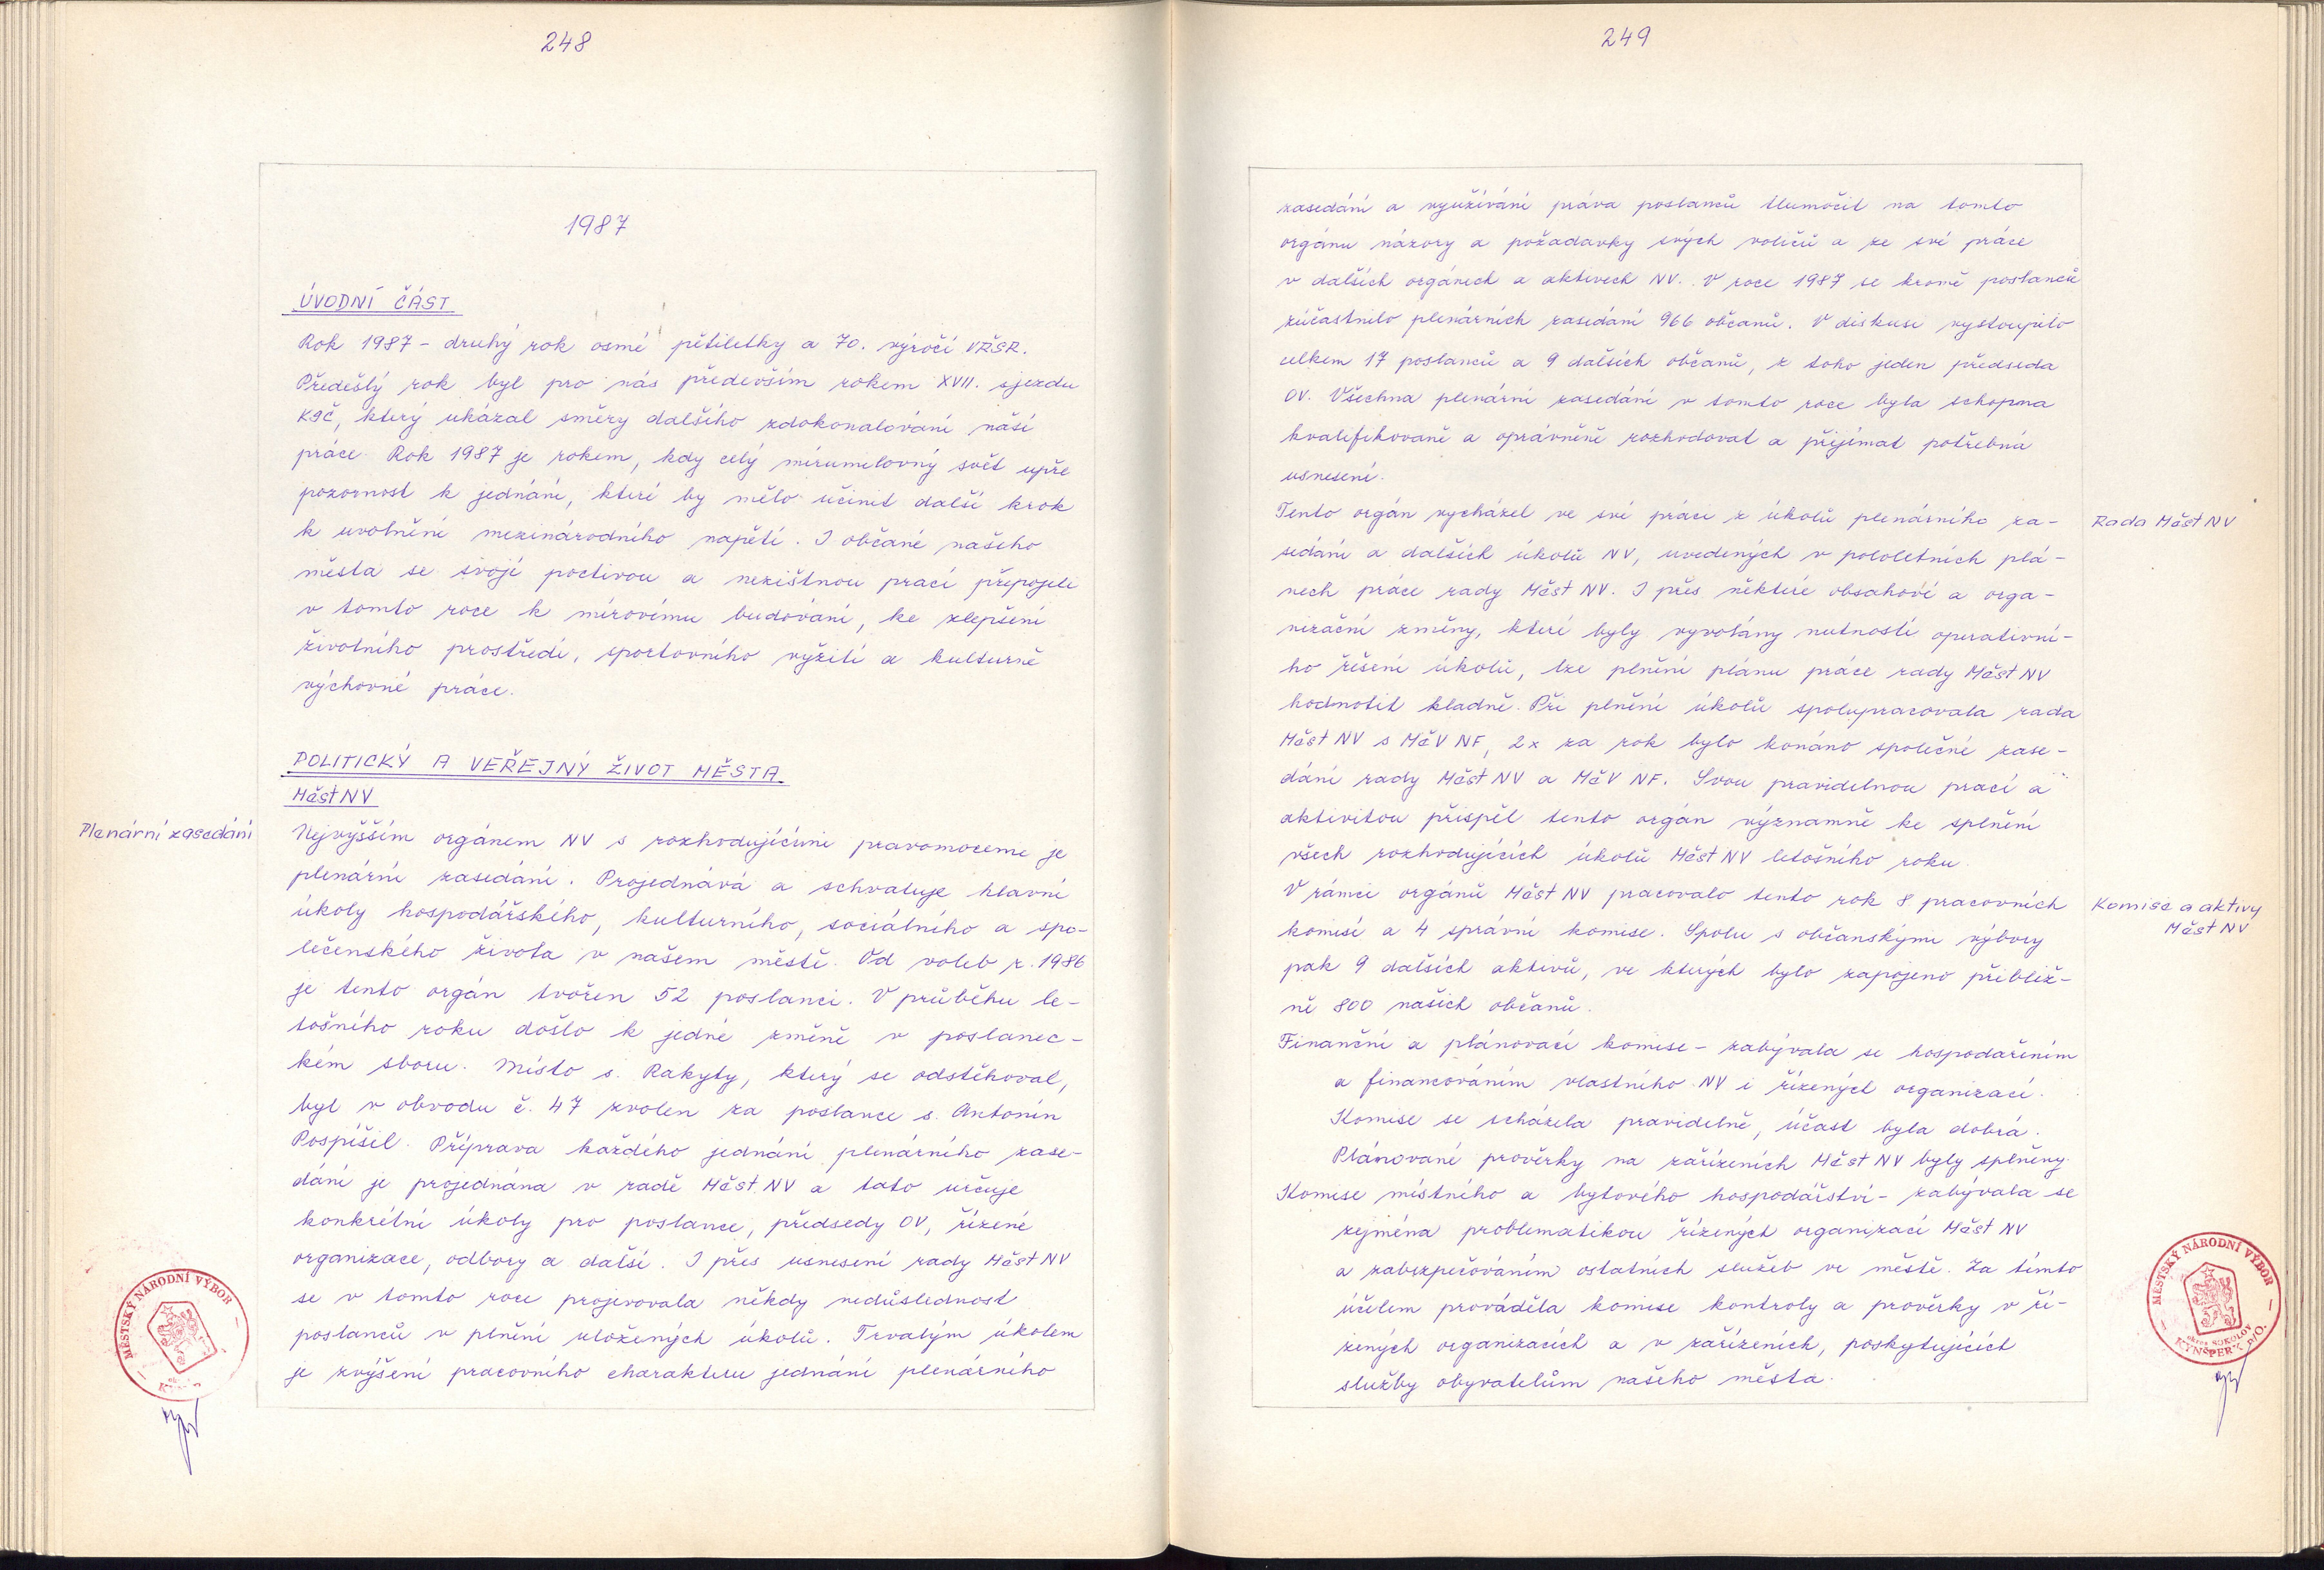 248
1987
ÚVODNÍ ČÁST
Rok 1987 - druhý rok osmé pětiletky a 70. výročí VŘSR.
Předešlý rok byl pro nás především rokem XVII. sjezdu
KSČ, který ukázal směry dalšího zdokonalování naší
práce. Rok 1987 je rokem, kdy celý mírumilovný svět upře
pozornost k jednání, které by mělo učinit další krok
k uvolnění mezinárodního napětí. I občané našeho
města se svojí poctivou a nezištnou prací připojili
v tomto roce k mírovému budování, ke zlepšení
životního prostředí, sportovního vyžití a kulturně
výchovné práce.
POLITICKÝ A VEŘEJNÝ ŽIVOT MĚSTA
MěstNV
Plenární zasedání
Nejvyšším orgánem NV s rozhodujícími pravomocemi je
plenární zasedání. Projednává a schvaluje hlavní
úkoly hospodářského, kulturního, sociálního a spo-
lečenského života v našem městě. Od voleb r. 1986
je tento orgán tvořen 52 poslanci. V průběhu le-
tošního roku došlo k jedné změně v poslanec-
kém sboru. Místo s. Rakyty, který se odstěhoval,
byl v obvodu č. 47 zvolen za poslance s. Antonín
Pospíšil. Příprava každého jednání plenárního zase-
dání je projednána v radě Měst NV a tato určuje
konkrétní úkoly pro poslance, předsedy OV, řízené
organizace, odbory a další. I přes usnesení rady Měst NV
se v tomto roce projevovala někdy nedůslednost
poslanců v plnění uložených úkolů. Trvalým úkolem
je zvýšení pracovního charakteru jednání plenárního
MĚSTSKÝ NÁRODNÍ VÝBOR
249
zasedání a využívání práva poslanců tlumočit na tomto
orgánu názory a požadavky svých voličů a ze své práce
v dalších orgánech a aktivech NV. V roce 1987 se kromě poslanců
zúčastnilo plenárních zasedání 966 občanů. V diskusi vystoupilo
celkem 17 poslanců a 9 dalších občanů, z toho jeden předseda
OV. Všechna plenární zasedání v tomto roce byla schopna
kvalifikovaně a oprávněně rozhodovat a přijímat potřebná
usnesení.
Rada Měst NV
Tento orgán vycházel ve své práci z úkolů plenárního za-
sedání a dalších úkolů NV, uvedených v pololetních plá-
nech práce rady Měst NV. I přes některé obsahové a orga-
nizační změny, které byly vyvolány nutností operativní-
ho řešení úkolů, lze plnění plánu práce rady Měst NV
hodnotit kladně. Při plnění úkolů spolupracovala rada
Měst NV s MěV NF, 2x za rok bylo konáno společné zase-
dání rady Měst NV a MěV NF. Svou pravidelnou prací a
aktivitou přispěl tento orgán významně ke splnění
všech rozhodujících úkolů Měst NV letošního roku.
Komise a aktivy
Měst NV
V rámci orgánů Měst NV pracovalo tento rok 8 pracovních
komisí a 4 správní komise. Spolu s občanskými výbory
pak 9 dalších aktivů, ve kterých bylo zapojeno přibliž-
ně 800 našich občanů.
Finanční a plánovací komise - zabývala se hospodařením
a financováním vlastního NV i řízených organizací.
Komise se scházela pravidelně, účast byla dobrá.
Plánované prověrky na zařízeních Měst NV byly splněny.
Komise místního a bytového hospodářství - zabývala se
zejména problematikou řízených organizací Měst NV
a zabezpečováním ostatních služeb ve městě. Za tímto
účelem prováděla komise kontroly a prověrky v ří-
zených organizacích a v zařízeních, poskytujících
služby obyvatelům našeho města.
MĚSTSKÝ NÁRODNÍ VÝBOR
okres SOKOLOV
KYNŠPERK n/O.